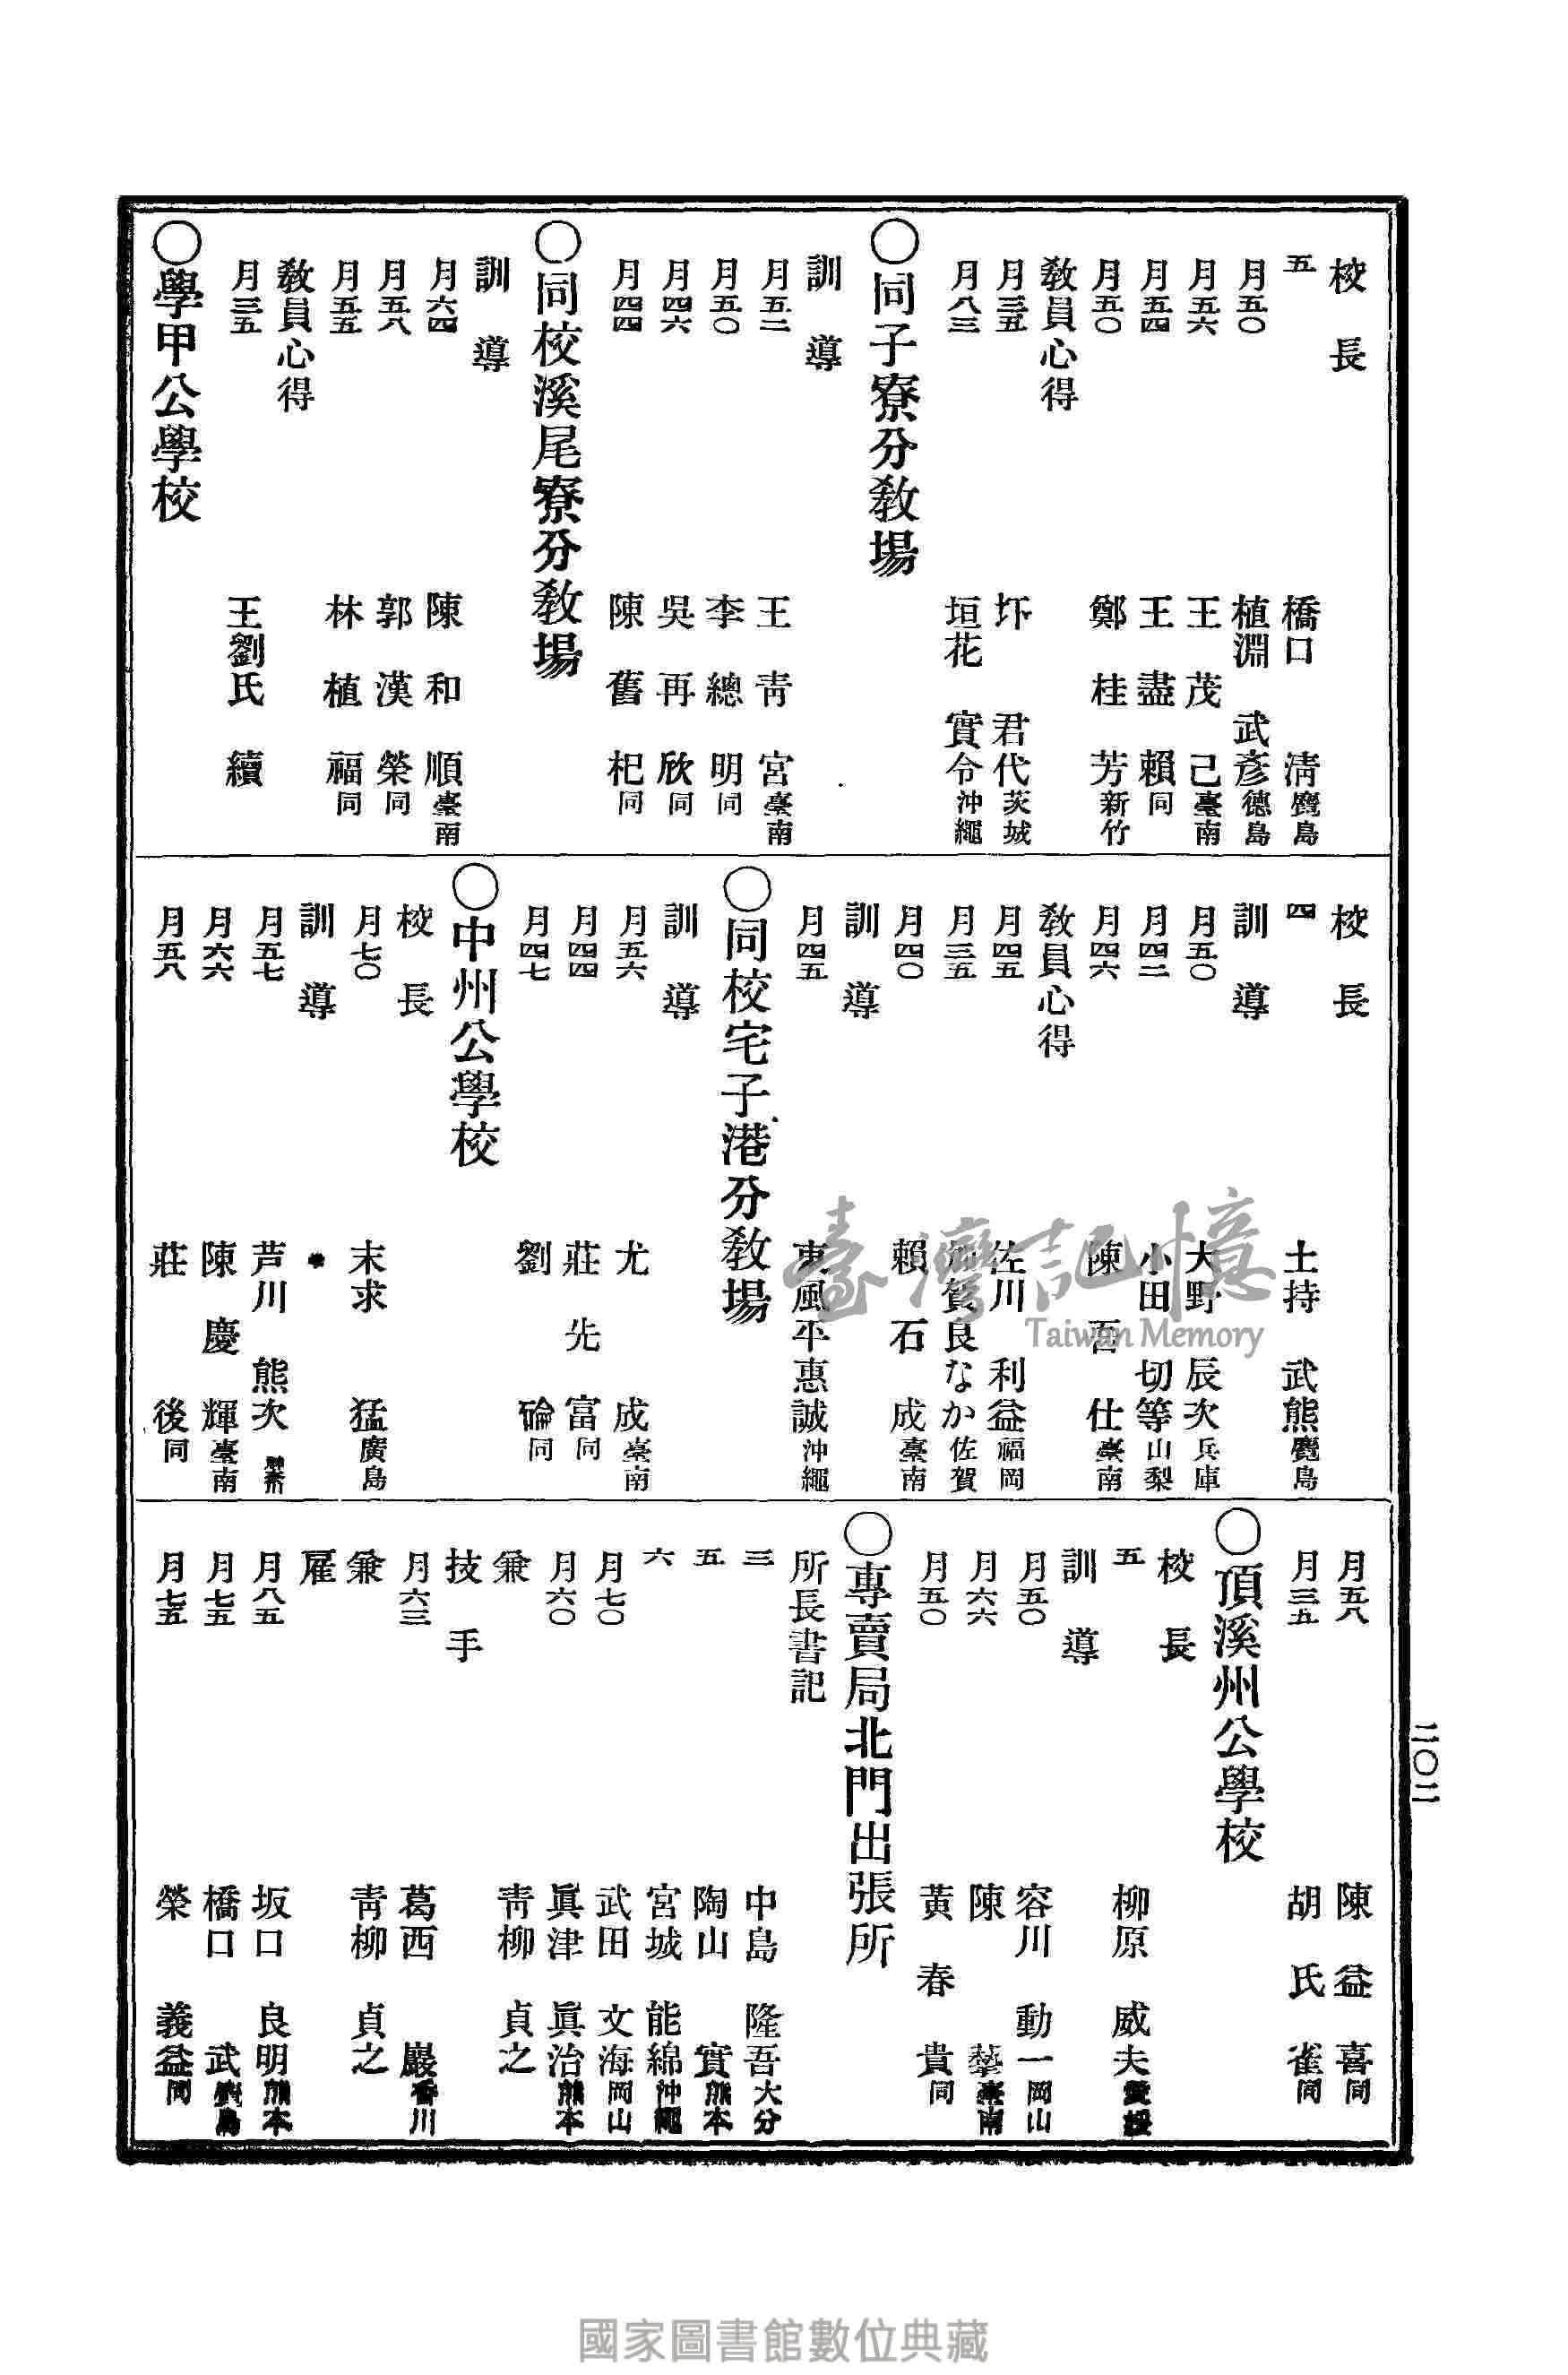 校長
五 橋口 淸 鹿兒島
月五〇 植淵 武彥 德島
月五六 王茂己 臺南
月五四 王盡賴 同
月五〇 鄭桂芳 新竹
敎員心得
月三五 圷 君代 茨城
月八三 垣花 實令 沖繩
〇同子寮分敎場
訓導
月五二 王靑宮 臺南
月五〇 李總明 同
月四六 吳再欣 同
月四四 陳舊杞 同
〇同校溪尾寮分敎場
訓導
月六四 陳和順 臺南
月五八 郭漢榮 同
月五五 林植福 同
敎員心得
月三五 王劉氏續
〇學甲公學校
校長
四 土持 武熊 鹿兒島
訓導
月五〇 大野 辰次 兵庫
月四二 小田切等 山梨
月四六 陳吾仕 臺南
敎員心得
月四五 佐川 利益 福岡
月三五 賀良なか 佐賀
月四〇 賴石成 臺南
訓導
月四五 東風平惠誠 沖繩
〇同校宅子港分敎場
訓導
月五六 尤成 臺南
月四四 莊先富 同
月四七 劉碖 同
〇中州公學校
校長
月七〇 末求 猛 廣島
訓導
月五七 芦川 熊次
月六六 陳慶輝 臺南
月五八 莊後 同
月五八 陳益喜 同
月三五 胡氏雀 同
〇頂溪州公學校
校長
五 柳原 威夫 愛媛
訓導
月五〇 容川 動一 岡山
月六六 陳 臺南
月五〇 黃春貴 同
〇專賣局北門出張所
所長書記
三 中島 隆吾 大分
五 陶山 實 熊本
六 宮城 能綿 沖繩
月七〇 武田 文海 岡山
月六〇 眞津 眞治 熊本
兼 靑柳 貞之
技手
月六三 葛西 巖 香川
兼 靑柳 貞之
雇
月八五 坂口 良明 熊本
月七五 橋口 武 鹿兒島
月七五 榮 義益 同
二〇二
臺灣記憶
Taiwan Memory
國家圖書館數位典藏